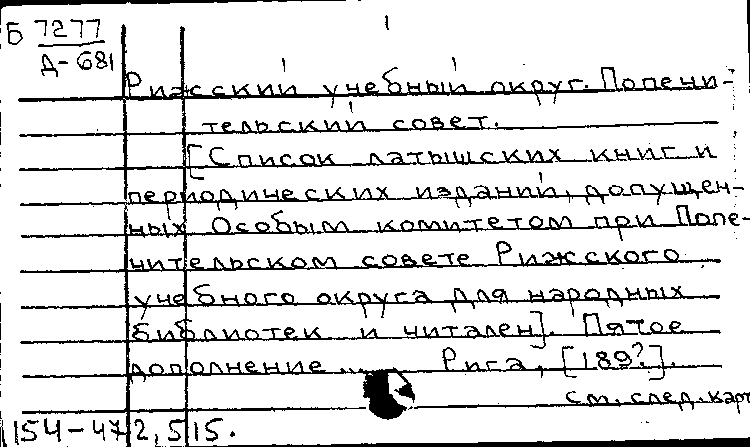 Б 7277
Д-681
Рижсский учебный округ. Попечи-
тельский совет.
[Список латышских книг и
периодических изданий, допущен-
ных Особым комитетом при Попе-
чительском совете Рижсского
учебного округа для народных
библиотек и читален]. Пятое
дополнение ..... Рига, [189?].
см. след. карт
154-472, 515.